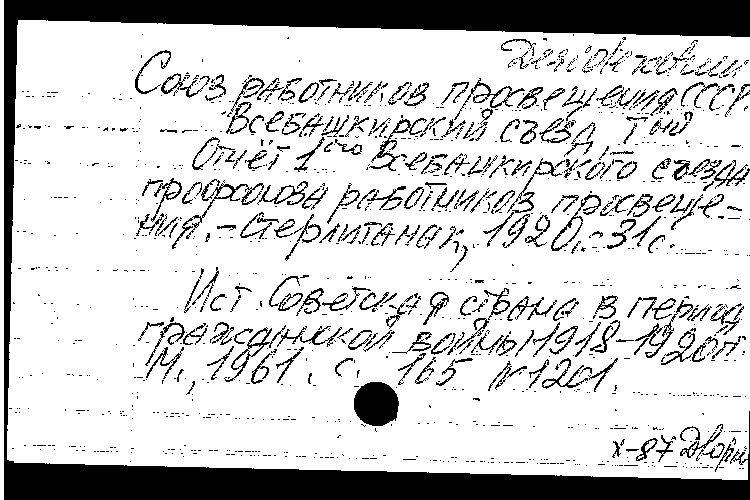 Союз работников просвещения СССР.
Всебашкирский съезд, 1ый
Отчёт 1сто Всебашкирского съезда
профсоюза работников просвеще-
ния. - Стерлитамак, 1920. - 31 с.
Ист. Советская страна в период
гражданской войны 1918-1920 гг.
М., 1961. с. 165 № 1201.
х-87